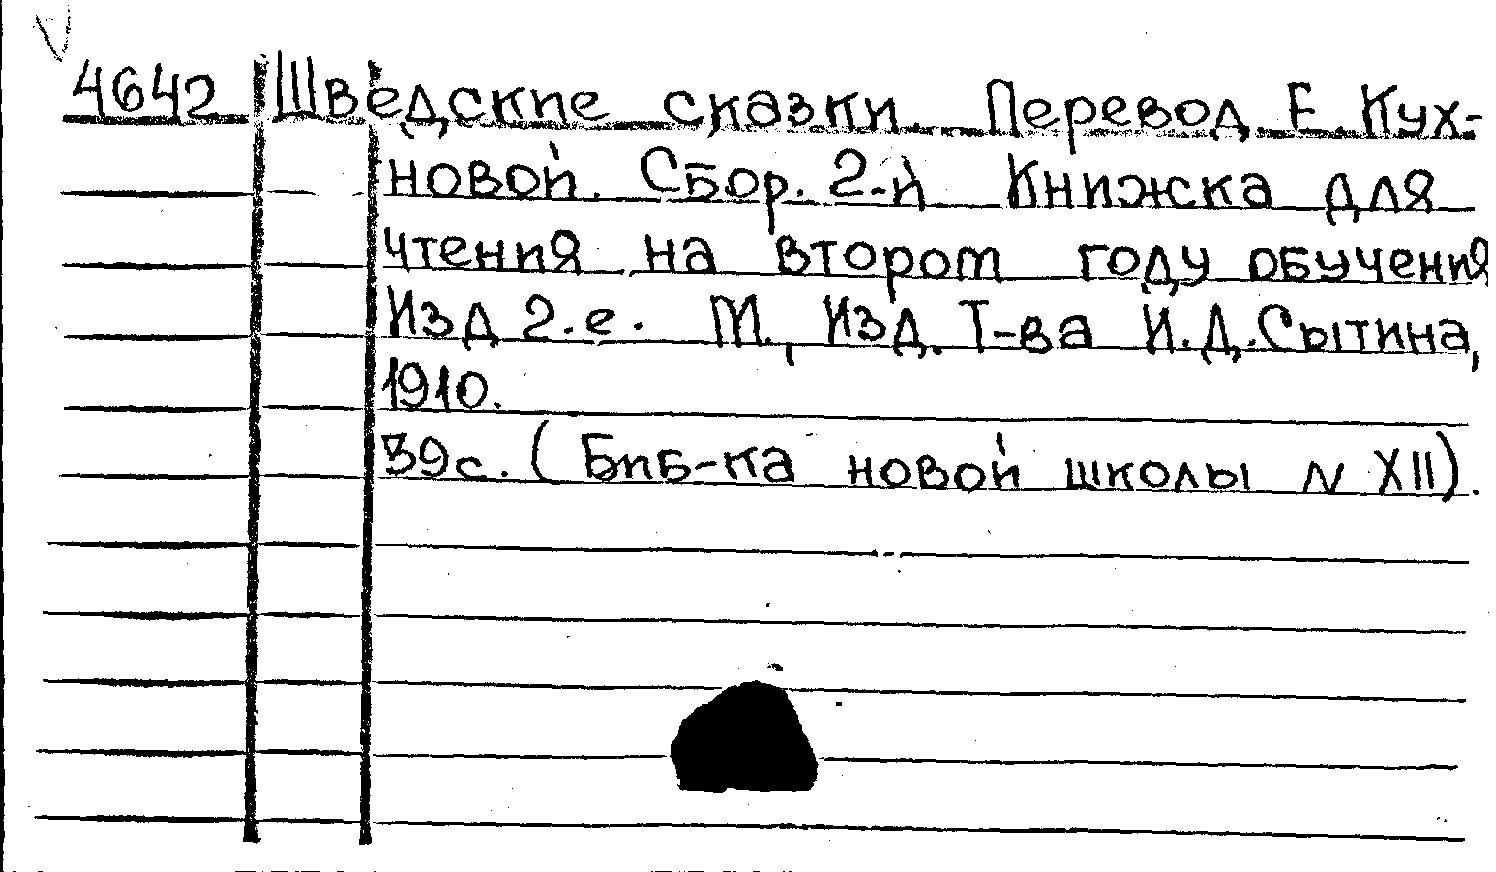 4642 Шведские сказки. Перевод Е. Кух-
новой. Сбор. 2-й Книжка для
чтения на втором году обучения
Изд 2.е. М., Изд. Т-ва И.Д.Сытина,
1910.
39с. (Биб-ка новой школы N XII).